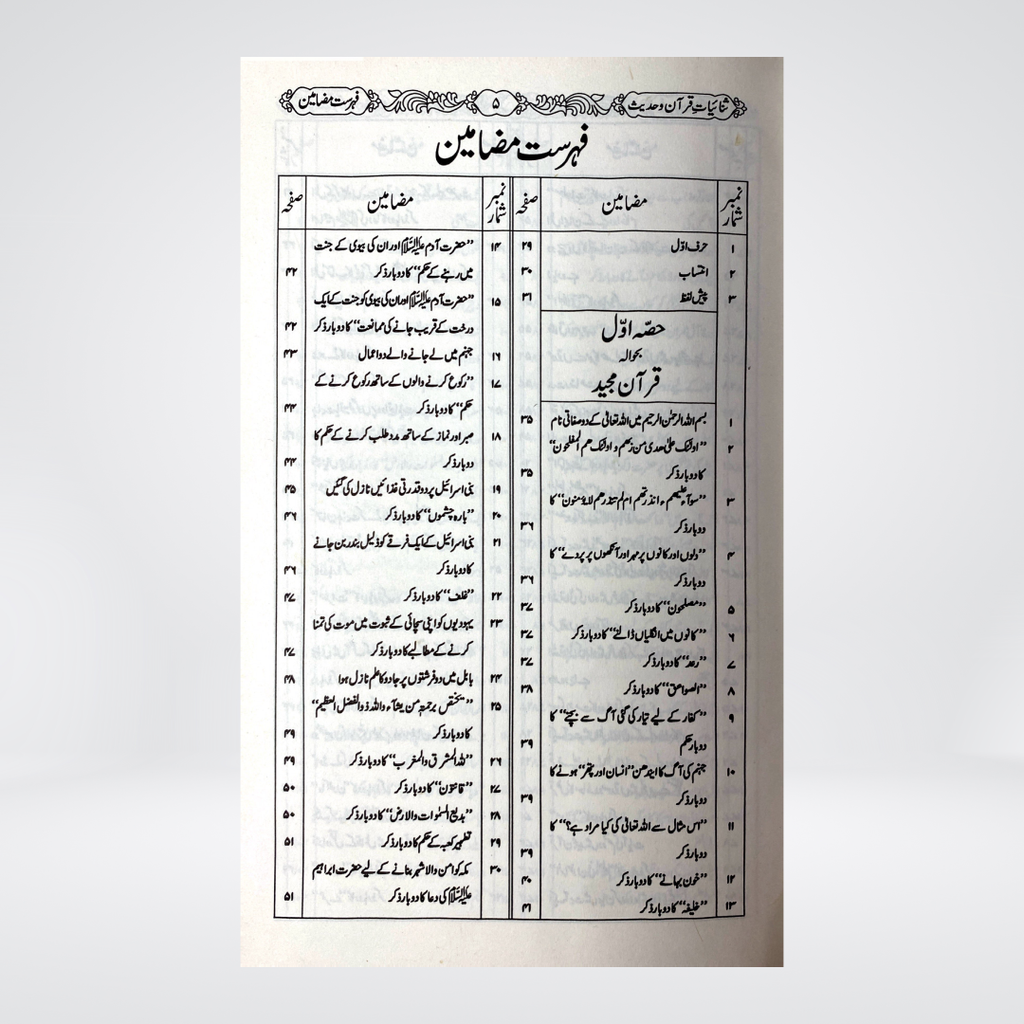 ثنائیاتِ قرآن و حدیث ۵ فہرست مضامین
فہرست مضامین
نمبر شمار مضامین صفحہ
۱ حرف اوّل ۲۹
۲ انتساب ۳۰
۳ پیش لفظ ۳۱
حصّہ اوّل
بحوالہ
قرآن مجید
۱ بسم اللہ الرحمٰن الرحیم میں اللہ تعالیٰ کے دو صفاتی نام ۳۵
۲ ’’اولٰئک علیٰ ھدی من ربھم و اولٰئک ھم المفلحون‘‘
کا دو بار ذکر ۳۵
۳ ’’سوآء علیھم ءانذرتھم ام لم تنذرھم لایؤمنون‘‘ کا
دو بار ذکر ۳۶
۴ ’’دلوں اور کانوں پر مہر اور آنکھوں پر پردے‘‘ کا
دو بار ذکر ۳۶
۵ ’’مصلحون‘‘ کا دو بار ذکر ۳۷
۶ ’’کانوں میں انگلیاں ڈالنے‘‘ کا دو بار ذکر ۳۷
۷ ’’رعد‘‘ کا دو بار ذکر ۳۷
۸ ’’الصواعق‘‘ کا دو بار ذکر ۳۸
۹ ’’کفار کے لیے تیار کی گئی آگ سے بچنے‘‘ کا
دو بار حکم ۳۹
۱۰ جہنم کی آگ کا ایندھن ’’انسان اور پتھر‘‘ ہونے کا
دو بار ذکر ۳۹
۱۱ ’’اس مثال سے اللہ تعالیٰ کی کیا مراد ہے؟‘‘ کا
دو بار ذکر ۳۹
۱۲ ’’خون بہانے‘‘ کا دو بار ذکر ۴۰
۱۳ ’’خلیفہ‘‘ کا دو بار ذکر ۴۱
نمبر شمار مضامین صفحہ
۱۴ ’’حضرت آدم علیہ السلام اور ان کی بیوی کے جنت
میں رہنے کے حکم‘‘ کا دو بار ذکر ۴۲
۱۵ ’’حضرت آدم علیہ السلام اور ان کی بیوی کو جنت کے ایک
درخت کے قریب جانے کی ممانعت‘‘ کا دو بار ذکر ۴۲
۱۶ جہنم میں لے جانے والے دو اعمال ۴۳
۱۷ ’’رکوع کرنے والوں کے ساتھ رکوع کرنے کے
حکم‘‘ کا دو بار ذکر ۴۴
۱۸ صبر اور نماز کے ساتھ مدد طلب کرنے کے حکم کا
دو بار ذکر ۴۴
۱۹ بنی اسرائیل پر دو قدرتی غذائیں نازل کی گئیں ۴۵
۲۰ ’’بارہ چشموں‘‘ کا دو بار ذکر ۴۶
۲۱ بنی اسرائیل کے ایک فرقے کو ذلیل بندر بن جانے
کا دو بار ذکر ۴۶
۲۲ ’’غلف‘‘ کا دو بار ذکر ۴۷
۲۳ یہودیوں کو اپنی سچائی کے ثبوت میں موت کی تمنا
کرنے کے مطالبے کا دو بار ذکر ۴۷
۲۴ بابل میں دو فرشتوں پر جادو کا علم نازل ہوا ۴۸
۲۵ ’’یختص برحمتہٖ من یشآء واللہ ذوالفضل العظیم‘‘
کا دو بار ذکر ۴۹
۲۶ ’’للہ المشرق والمغرب‘‘ کا دو بار ذکر ۴۹
۲۷ ’’قانتون‘‘ کا دو بار ذکر ۵۰
۲۸ ’’بدیع السمٰوات والارض‘‘ کا دو بار ذکر ۵۰
۲۹ تطہیر کعبہ کے حکم کا دو بار ذکر ۵۱
۳۰ مکہ کو امن والا شہر بنانے کے لیے حضرت ابراہیم
علیہ السلام کی دعا کا دو بار ذکر ۵۱